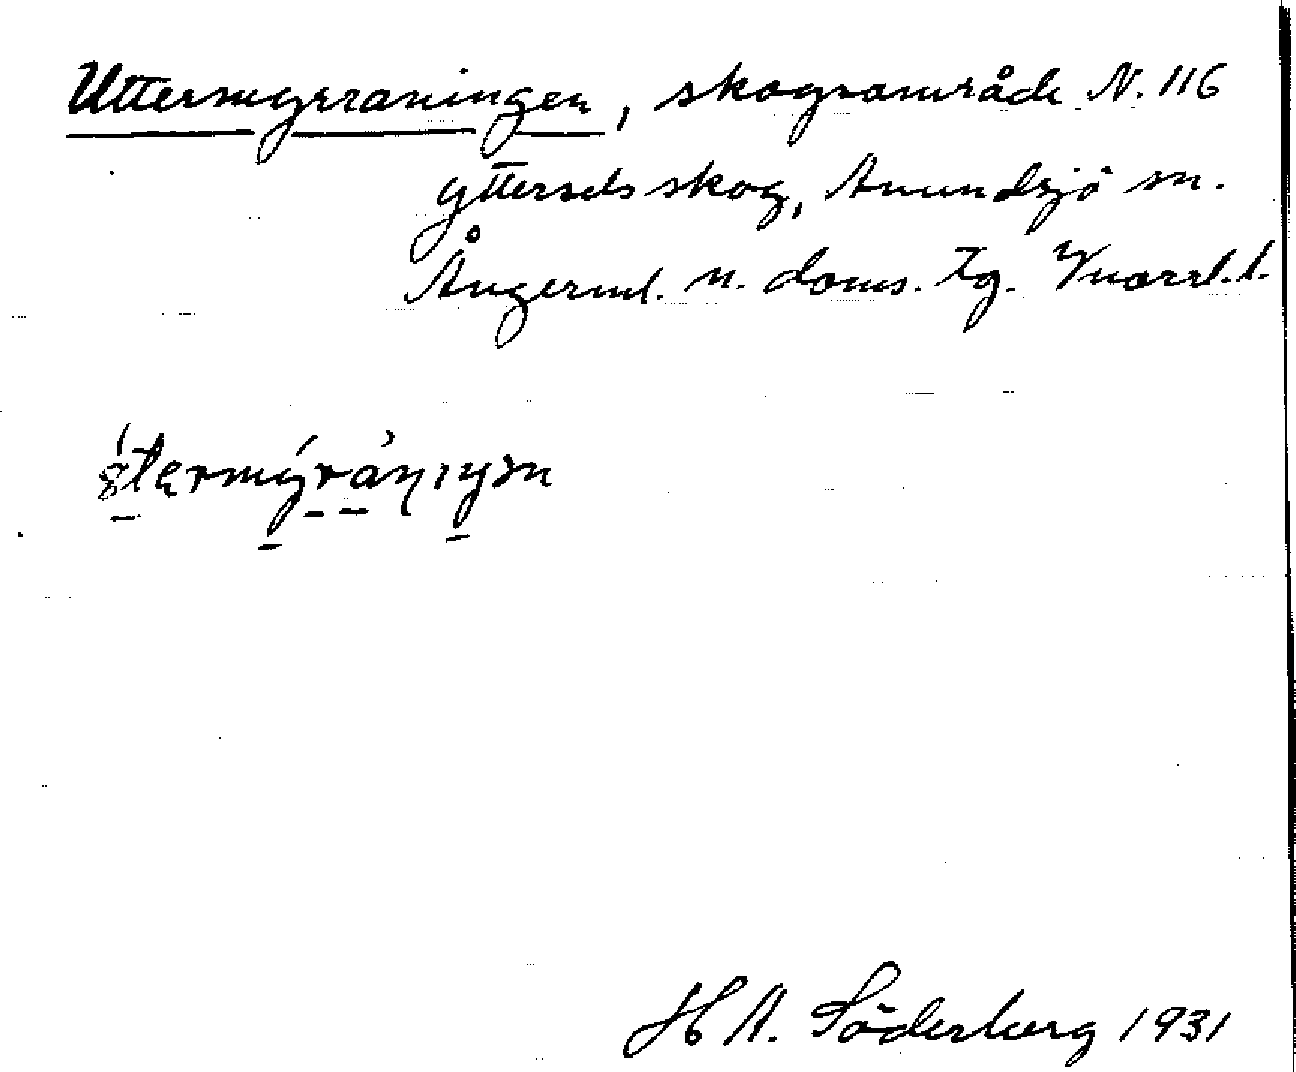 Uttermyrraningen, skogsområde N. 116
Ytterselsskog, Anundsjö sn.
Ångerml. n. doms. tg. Vnorrl. l.
H A. Söderberg 1931